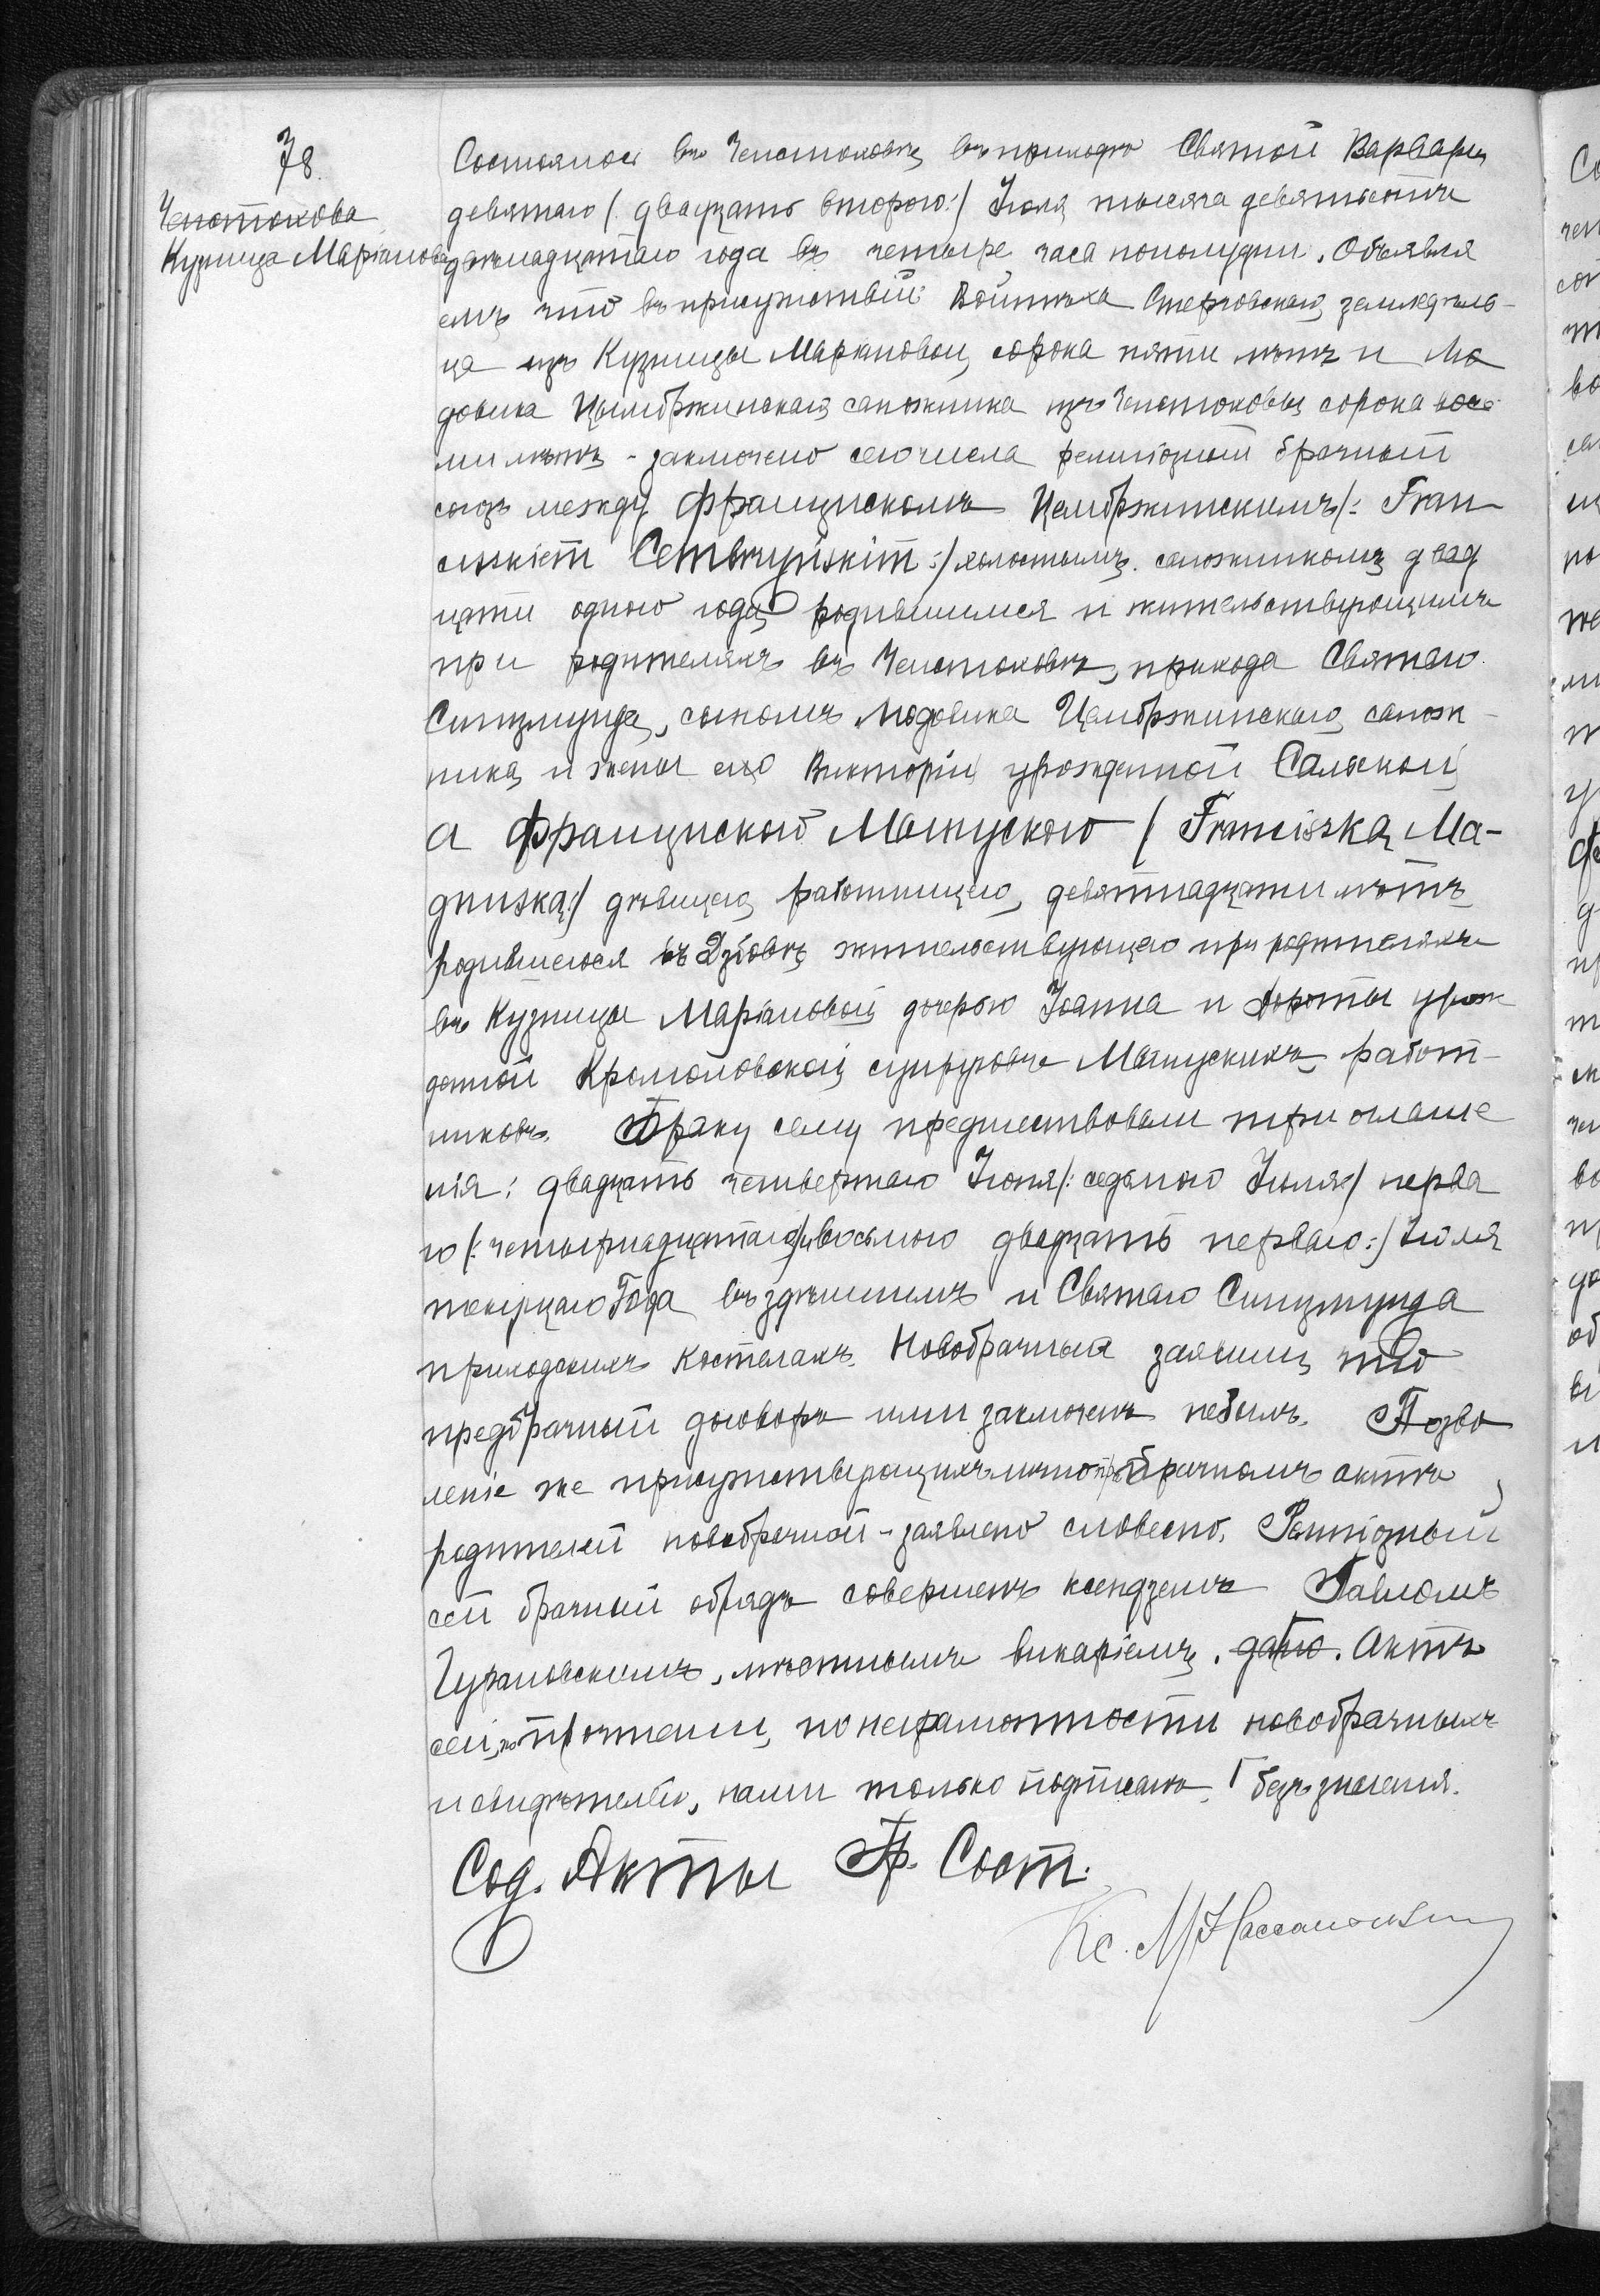 78.
Ченстохова
Кузница Маріанова
Состоялось въ Ченстоховѣ въ приходѣ Святой Варвары
девятаго /: двадцать второго :/ Іюля тысяча девятьсотъ
двѣнадцатаго года въ четыре часа пополудни. Объявля
емъ что въ присутствіи Войтѣха земледѣль-
ца изъ Кузницы Маріановой, сорока пяти лѣтъ и Лю
довика Цембржинскаго, сапожника изъ Ченстоховы сорока вось
ми лѣтъ - заключенъ сего числа религіозный брачный
союзъ между Францискомъ Цембржинскимъ /: Fran
ciszkiem Cembrzyńskim :/ холостымъ, сапожникомъ двад
цати одного года родившимся и жительствующимъ
при родителяхъ въ Ченстоховѣ, прихода Святаго
Сигизмунда, сыномъ Людовика Цембржинскаго, сапож-
ника, и жены его Викторіи урожденной
а Францискою Мадускою /: Franciszką Ma-
duską :/ дѣвицею, работницею, девятнадцати лѣтъ
родившеюся въ Дзбовѣ жительствующею при родителяхъ
въ Кузницы Маріановой дочерью Іоанна и Дороты урож
денной Кромоловской супруговъ Мадускихъ работ-
никовъ. Браку сему предшествовали три оглаше
нія: двадцать четвертаго Іюня /: седьмого Іюля :/ перва
го /: четырнадцатаго :/ и восьмого двадцать перваго :/ Іюля
текущаго Года въ здѣшнемъ и Святаго Сигизмунда
приходскихъ костелахъ. Новобрачные заявили, что
предбрачный договоръ ими заключенъ небылъ. Позво
леніе же присутствующихъ лично при брачномъ актѣ
родителей новобрачной - заявлено словесно. Религіозный
сей брачный обрядъ совершенъ ксендзомъ Павломъ
мѣстнымъ викаріемъ. Актъ
сей, по прочтеніи, по неграмотности новобрачныхъ
и свидѣтелей, нами только подписанъ. безъ значенія.
Сод. Акты Гр. Сост.
Кс. М.